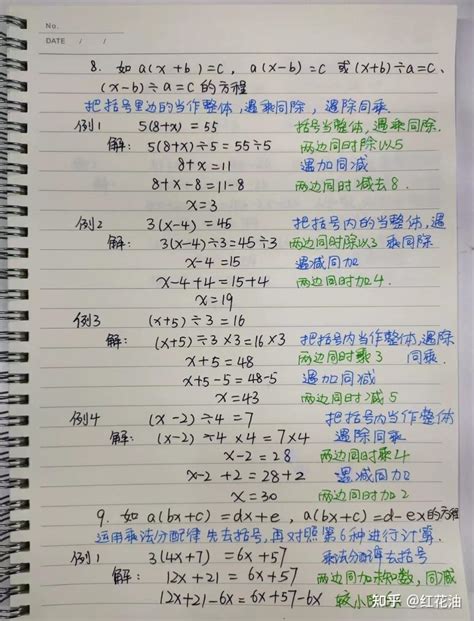 No.
DATE / /
8. 如 a(x+b)=c, a(x-b)=c 或(x+b)÷a=c、
(x-b)÷a=c 的方程
把括号里边的当作整体,遇乘同除,遇除同乘
例1 5(8+x)=55 括号当整体,遇乘同除.
解: 5(8+x)÷5=55÷5 两边同时除以5
8+x=11 遇加同减
8+x-8=11-8 两边同时减去8.
x=3
例2 3(x-4)=45 把括号内的当整体,遇
解: 3(x-4)÷3=45÷3 两边同时除以3 乘同除
x-4=15 遇减同加
x-4+4=15+4 两边同时加4.
x=19
例3 (x+5)÷3=16 把括号内当作整体,遇除
解: (x+5)÷3×3=16×3 两边同时乘3 同乘.
x+5=48
x+5-5=48-5 遇加同减
x=43 两边同时减5
例4 (x-2)÷4=7 把括号内当作整体
解: (x-2)÷4×4=7×4 遇除同乘
x-2=28 两边同时乘4
x-2+2=28+2 遇减同加
x=30 两边同时加2
9. 如 a(bx+c)=dx+e, a(bx+c)=d-ex的方程
运用乘法分配律先去括号,再对照第6种进行计算.
例1 3(4x+7)=6x+57 乘法分配律去括号
解: 12x+21=6x+57 两边同加未知数,同减
12x+21-6x=6x+57-6x 较小
知乎 @红花油